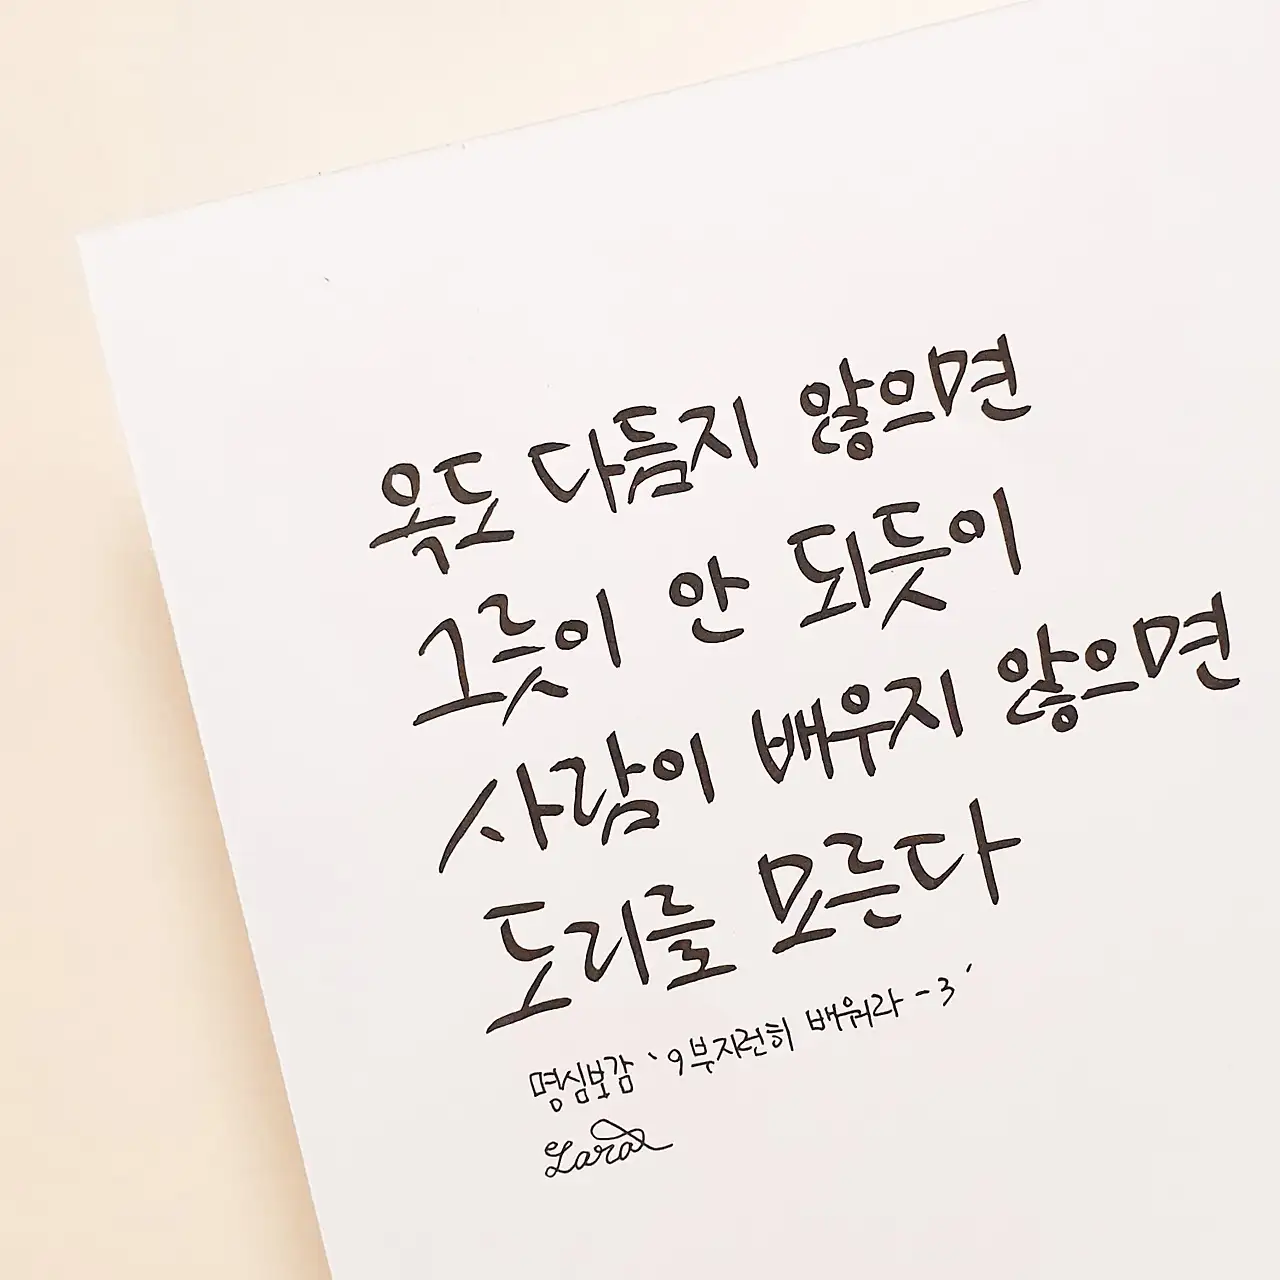 옥도 다듬지 않으면
그릇이 안 되듯이
사람이 배우지 않으면
도리를 모른다
명심보감 '9부지런히 배워라-3'
Lara